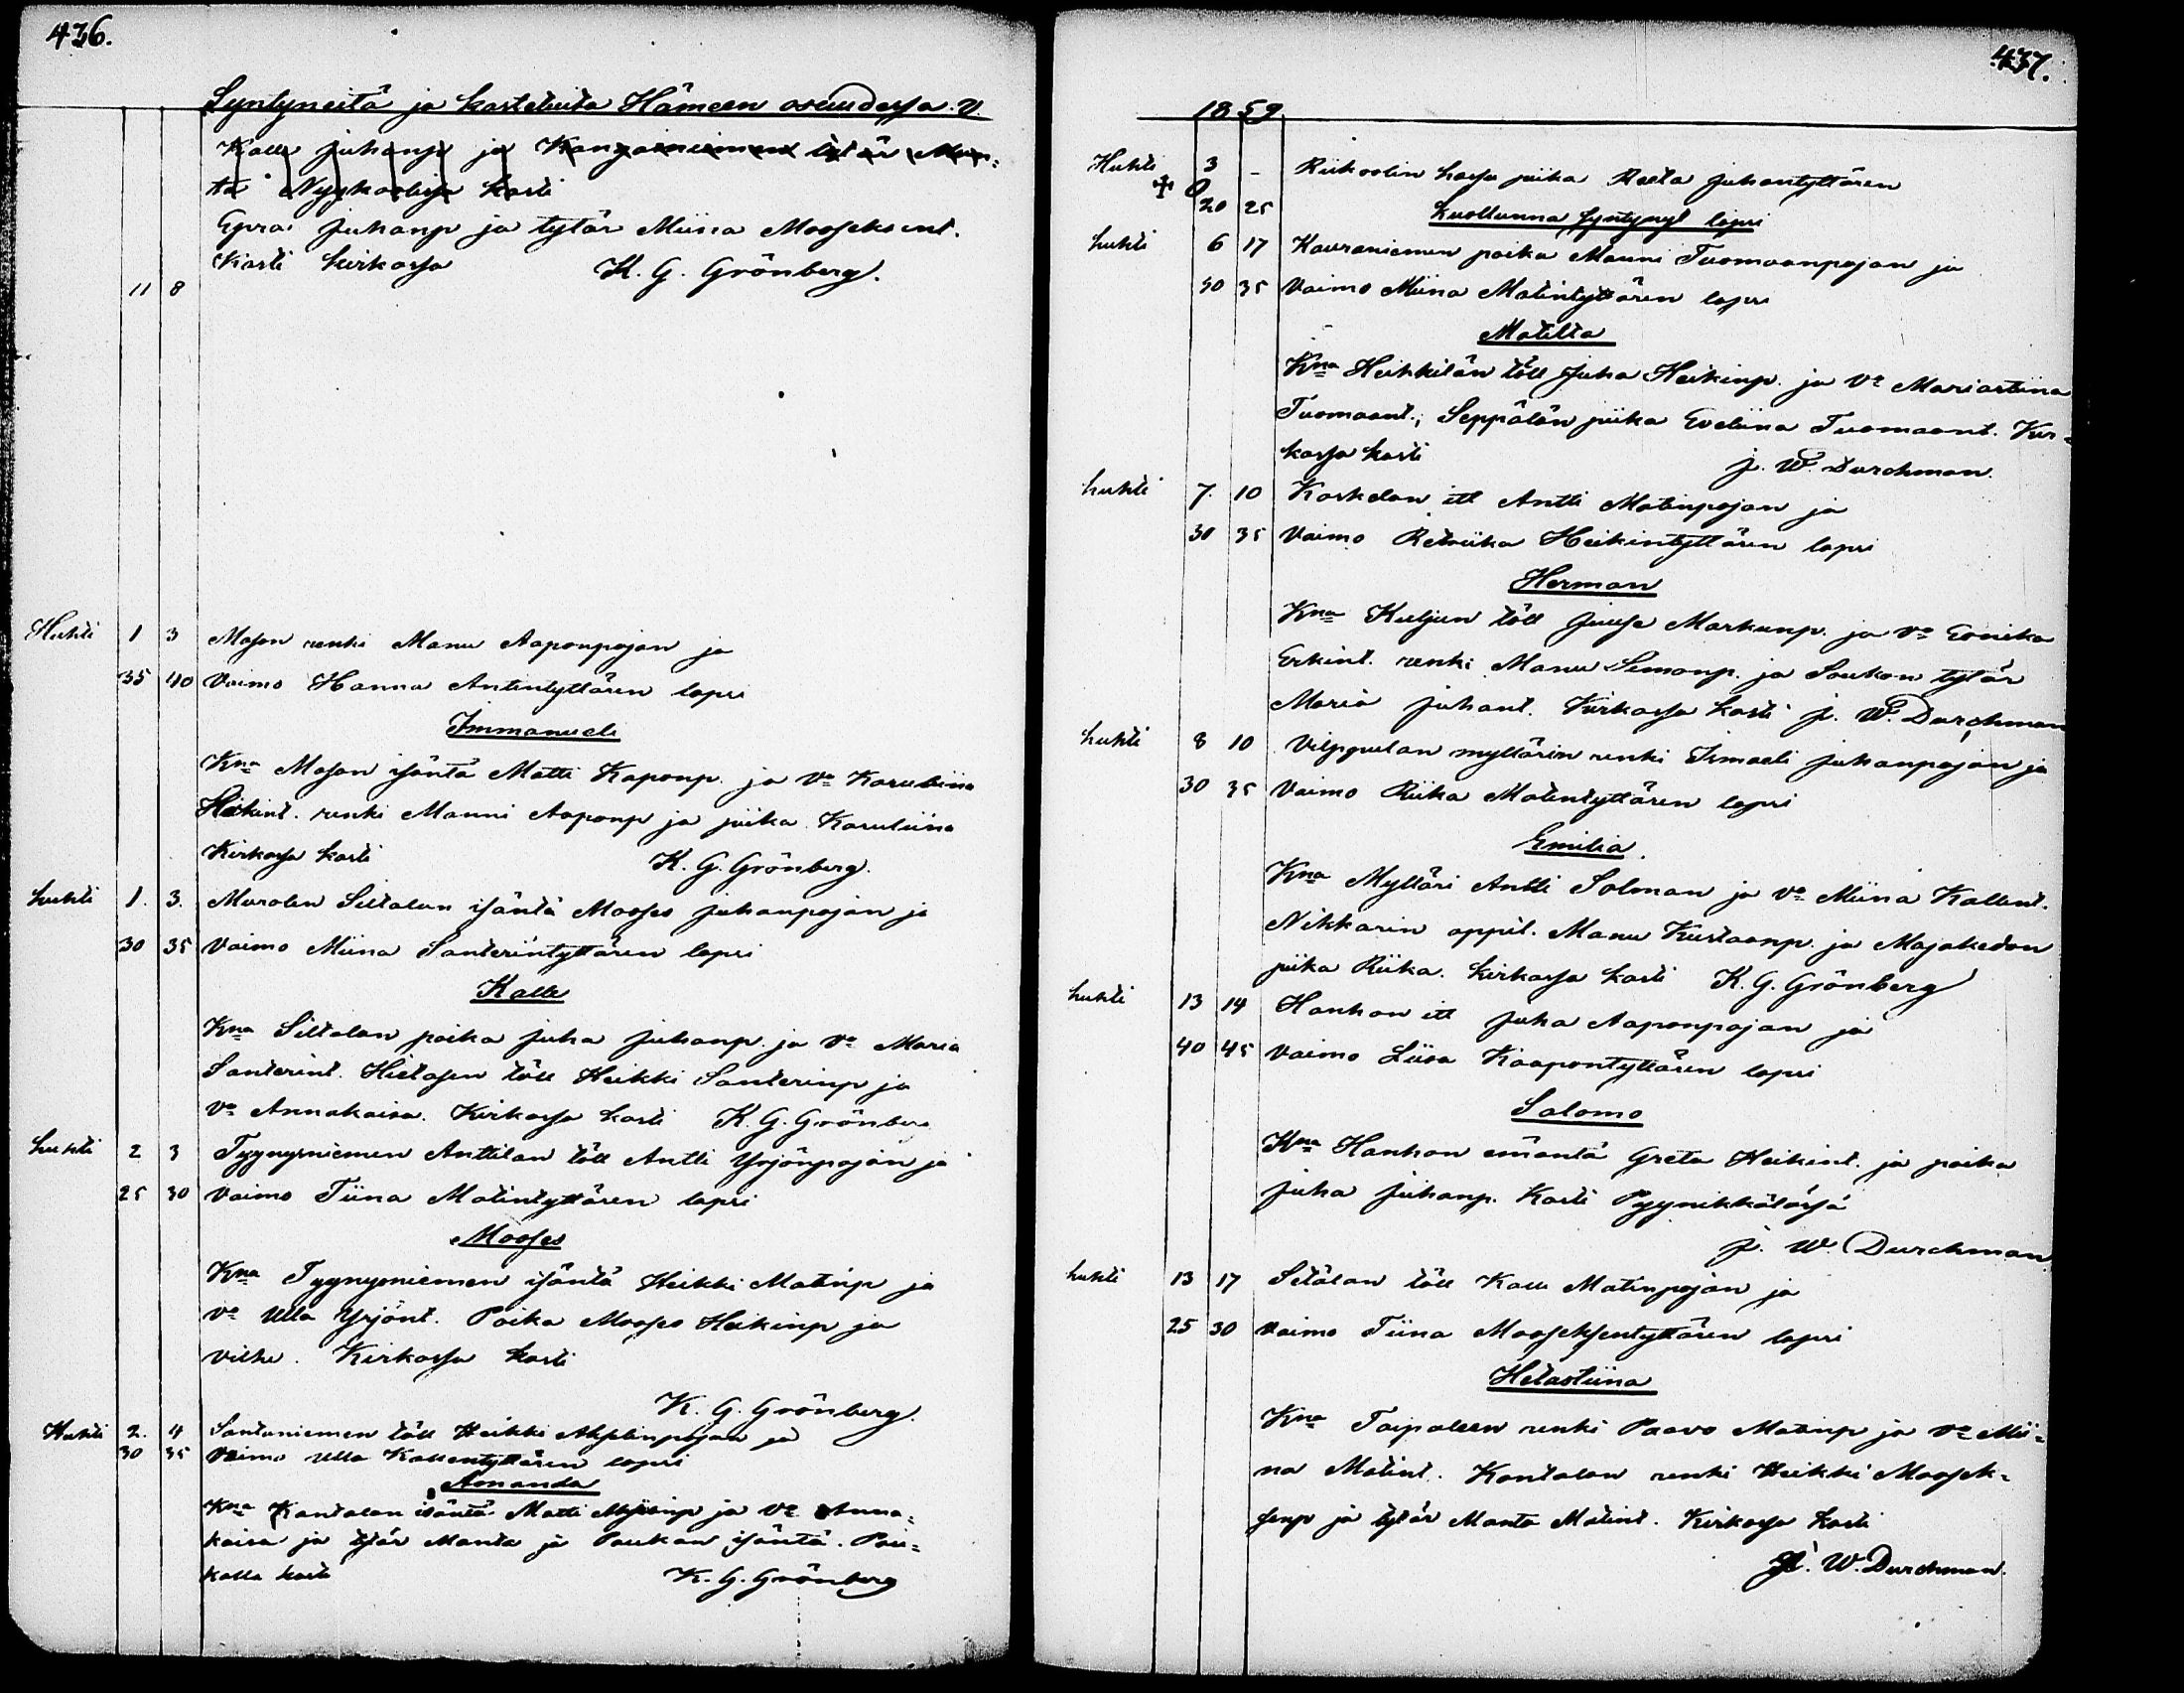 436.
Syntyneitä ja kastetuita Hämeen osuudessa. V.
Kalle Juhanp ja Kangasniemen tytär Man-
ta Nygkoolissa kasti
Epra Juhanp ja tytär Miina Mooseksent.
Kasti kirkossa K. G. Grönberg.
11 8
Huhti 1 3 Mason renki Manu Aaponpojan ja
35 40 Vaimo Hanna Antintyttären lapsi
Immanueli
Kna Mason isäntä Matti Kaponp. ja Vo Karuliina
Heikint. renki Manni Aaponp ja piika Karuliina
Kirkossa kasti K. G. Grönberg.
huhti 1. 3. Murolen Siltalan isäntä Mooses Juhanpojan ja
30 35 Vaimo Miina Santerintyttären lapsi
Kalle
Kna Siltalan poika Juha Juhanp. ja Vo Maria
Santerint. Hietasen töll Heikki Santerinp ja
Vo Annakaisa. Kirkossa kasti K. G. Grönberg
huhti 2 3 Tyynyniemen Anttilan töll Antti Yrjönpojan ja
25 30 Vaimo Tiina Matintyttären lapsi
Mooses
Kna Tyynyniemen isäntä Heikki Matinp ja
Vo Ulla Yrjönt. Poika Mooses Heikinp ja
Kirkossa kasti
K. G. Grönberg.
Huhti 2. 4 Santaniemen töll Heikki Akselinpojan ja
30 35 Vaimo Ulla Kallentyttären lapsi
Amanda
Kna Kantalan isäntä Matti ja Vo Anna-
kaisa ja tytär Manta ja Paukan isäntä. Pau-
kalla kasti K. G. Grönberg
437.
1859
Huhti 3 - Riikoolin hassu piika Reeta Juhantyttären
20 25 kuolluna syntynyt lapsi
huhti 6 17 Kauraniemen poika Manni Tuomaanpojan ja
30 35 Vaimo Miina Matintyttären lapsi
Matilta
Kna Heikkilän töll Juha Heikinp. ja Vo Mariastiina
Tuomaant., Seppälän piika Eveliina Tuomaant. Kir-
kossa kasti J. W. Durchman.
huhti 7. 10 Koskelan itl Antti Matinpojan ja
30 35 Vaimo Retriika Heikintyttären lapsi
Herman
Kna Kuljun töll Juuse Markunp. ja Vo Eevika
Erkint. renki Manu Simonp. ja Soukon tytär
Maria Juhant. Kirkossa kasti J. W. Durchman
huhti 8 10 Vilppulan myllärin renki Ismaeli Juhanpojan ja
30 35 Vaimo Riika Matintyttären lapsi
Emilia.
Kna Mylläri Antti Solman ja Vo Miina Kallent.
Nikkarin oppil. Manu Kustaanp. ja Majakedon
piika Riika. kirkossa kasti K. G. Grönberg
huhti 13 14 Honkon itl Juha Aaponpojan ja
40 45 Vaimo Liisa Kaapontyttären lapsi
Salomo
Kna Honkon emäntä Greta Heikint. ja poika
Juha Juhanp. Kasti Pyynikkälässä
J. W. Durchman
huhti 13 17 Setälan töll Kalle Matinpojan ja
25 30 Vaimo Tiina Mooseksentyttären lapsi
Hetastiina
Kna Taipaleen renki Paavo Matinp ja Vo Mii-
na Matint. Kantalan renki Heikki Moosek-
senp ja tytär Manta Matint. Kirkossa kasti
J. W. Durchman.